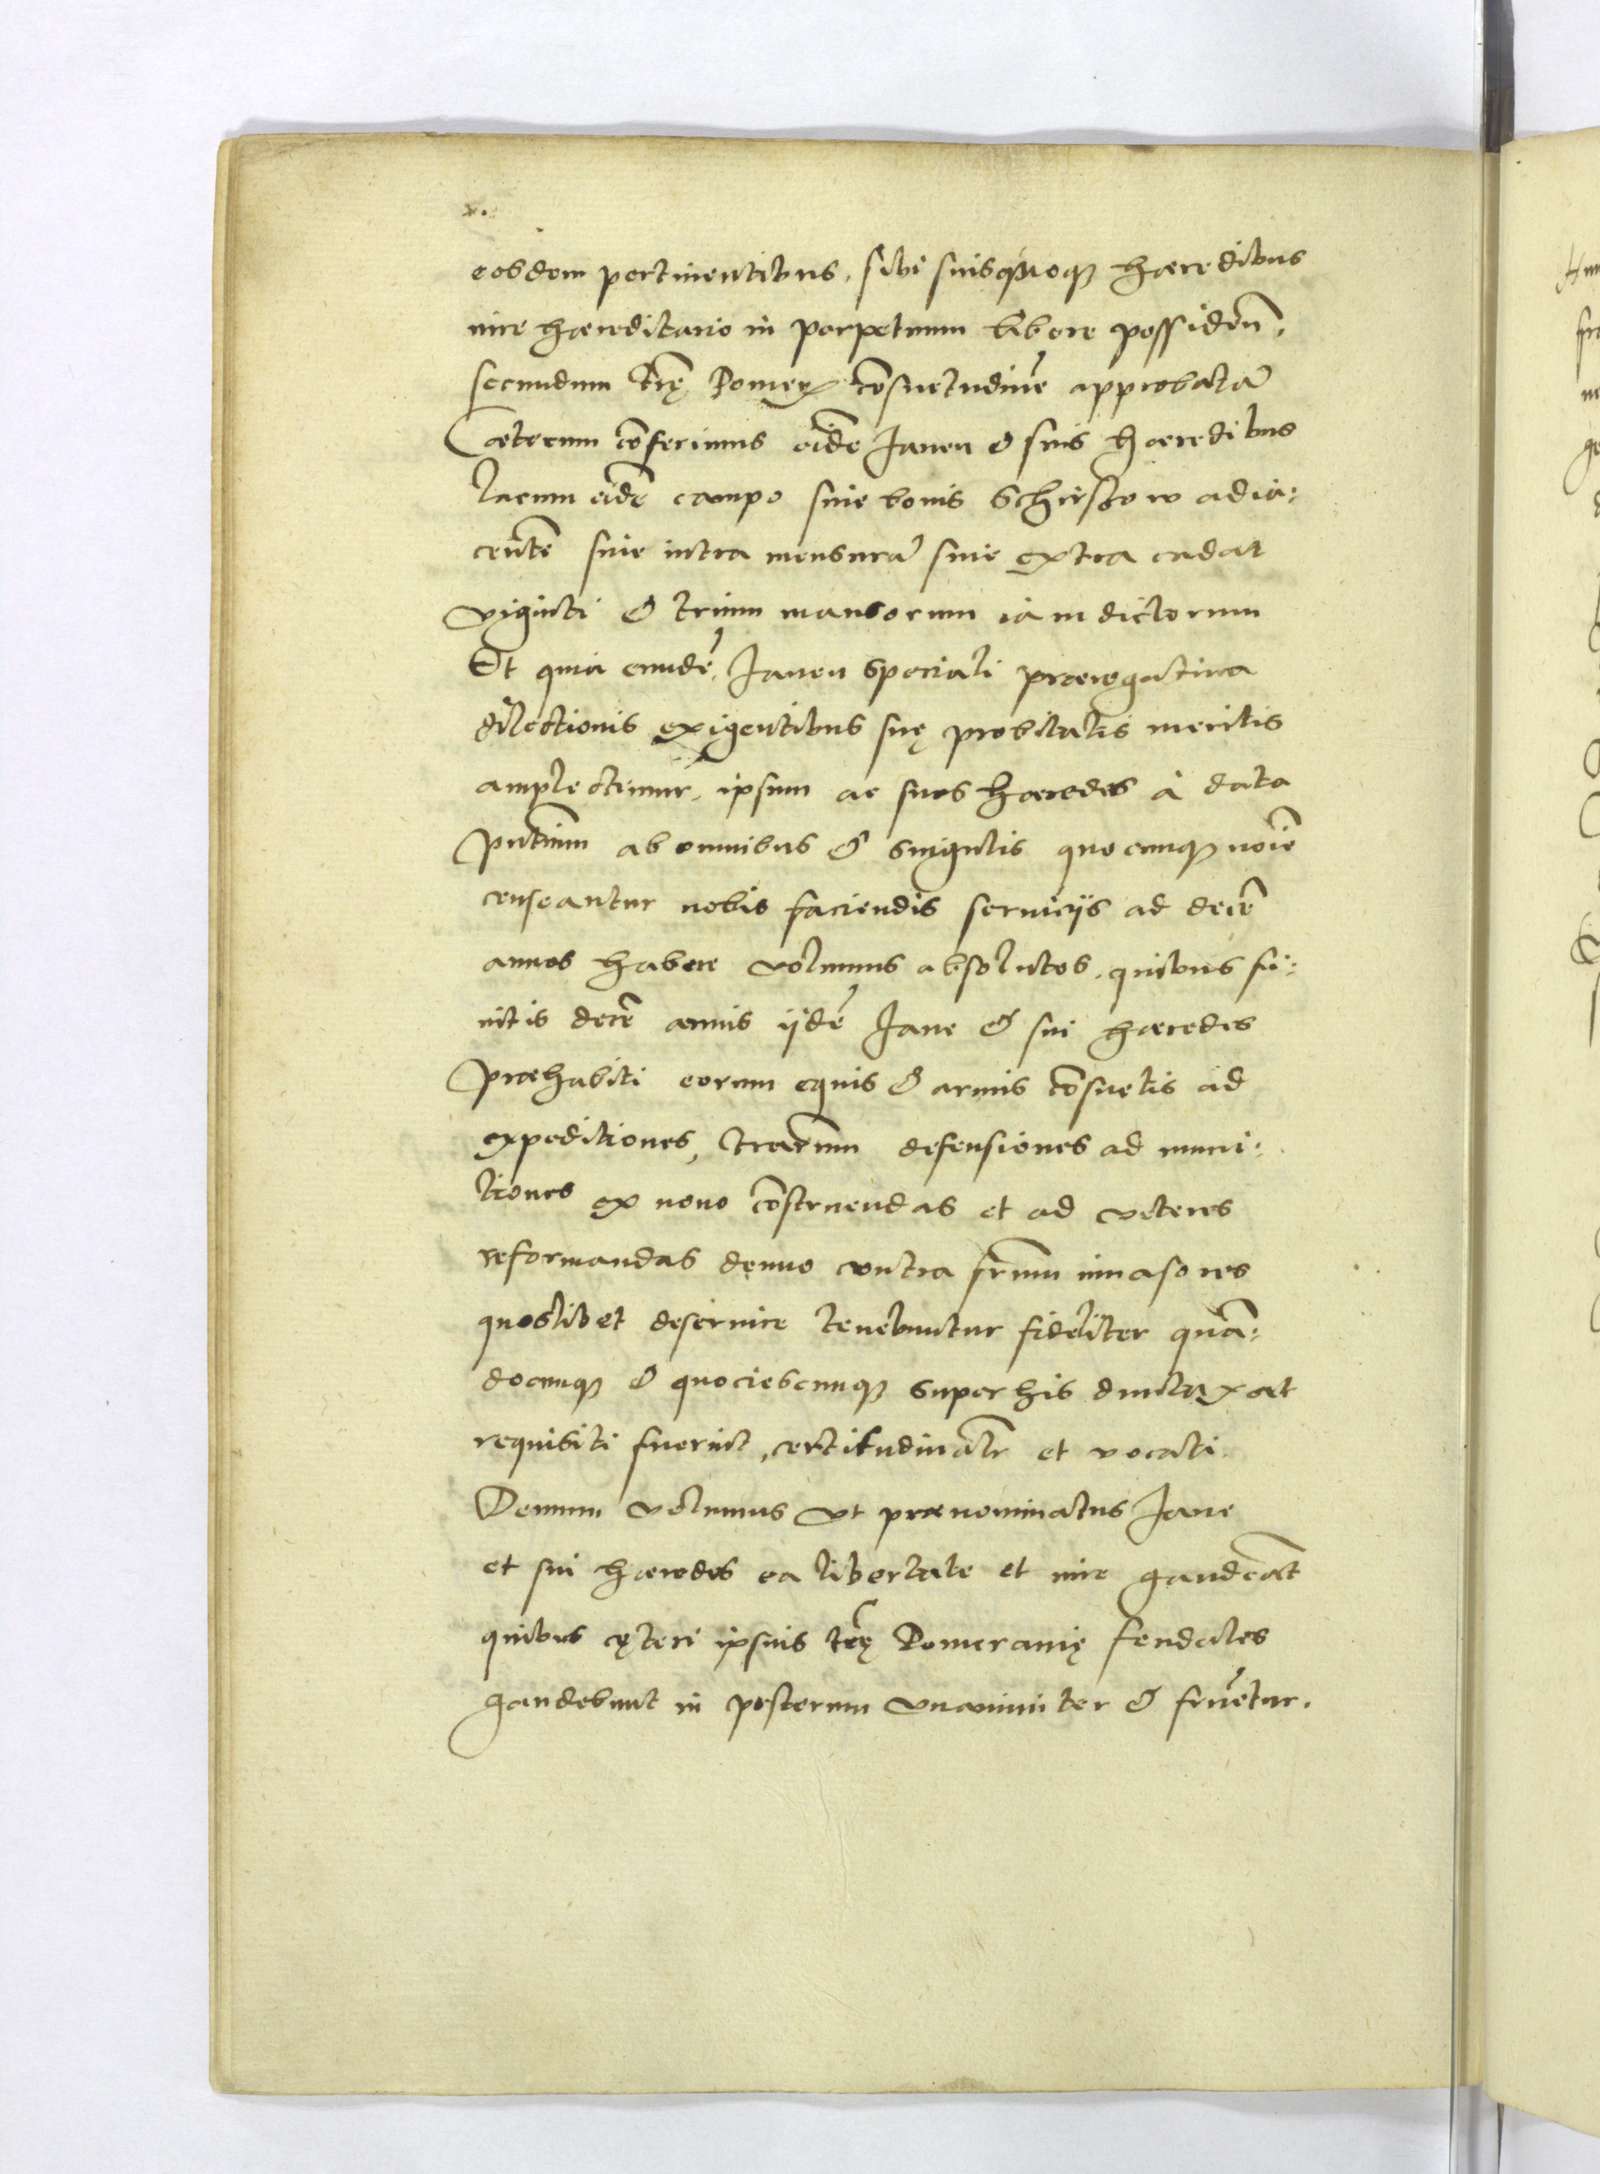 eosdem pertinentibus, sibi suisq́uoq3 hæredibus
iure hæreditario in perpetuum libere possideñ,
secundum trę Pomeꝝ cõsuetudinẽ approbatã
Cæterum cõferimus eidẽ Janeu & suis hæredibus
lacum eidẽ campo siue bonis Schirskow adia:
centẽ siue intra mensurã siue extra cadat
viginti & trium mansorum iam dictorum
Et quia eundẽ, Janeu speciali prærogatiua
dilectionis exigentibus suę probitatis meritis
amplectimur, ipsum ac suos hæredes à data
pñtium ab omnibus & singulis quocunq3 noiẽ
censeantur nobis faciendis seruicijs ad decẽ
annos habere volumus absolutos, quibus fi:
nitis decẽ annis ijdẽ Jane & sui hæredes
præhabiti eorum equis & armis cõsuetis ad
expeditiones, trarum defensiones ad muni:
tiones ex nouo cõstruendas et ad veteres
reformandas denuo contra frm̃ inuasores
quoslibet deseruire tenebuntur fideliter quã:
docunq3 & quociescunq3 super his duntaxat
requisiti fuerint, certitudinatr̃ et vocati.
Demum volumus vt prænominatus Jane
et sui hæredes ea libertate et iure gaudeãt
quibus cęteri ipsius trę Pomeranię feudales
gaudebunt in posterum vnanimiter & fruẽtur.